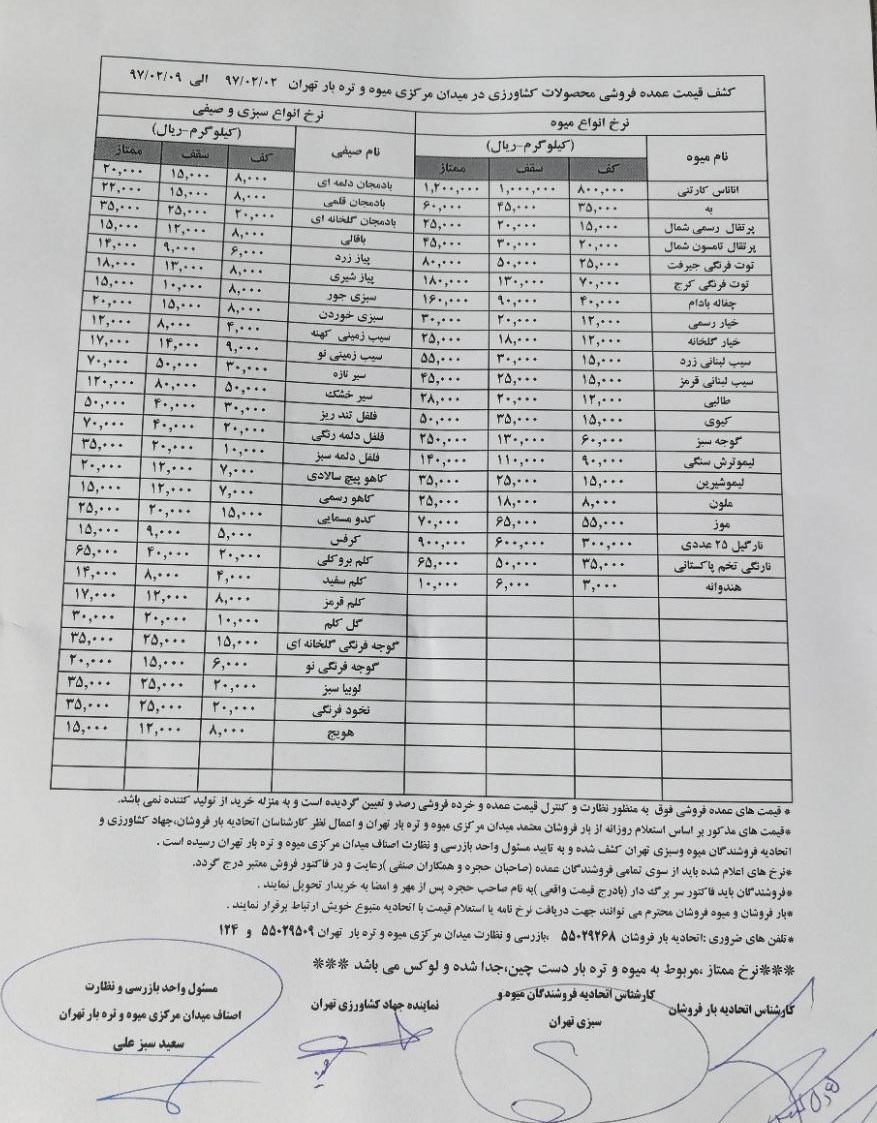 کشف قیمت عمده فروشی محصولات کشاورزی در میدان مرکزی میوه و تره بار تهران ۹۷/۰۲/۰۲ الی ۹۷/۰۲/۰۹
نرخ انواع میوه
نام میوه (کیلوگرم-ریال)
کف سقف ممتاز
آناناس کارتنی ۸۰۰,۰۰۰ ۱,۰۰۰,۰۰۰ ۱,۲۰۰,۰۰۰
به ۳۵,۰۰۰ ۴۵,۰۰۰ ۶۰,۰۰۰
پرتقال رسمی شمال ۱۵,۰۰۰ ۲۰,۰۰۰ ۲۵,۰۰۰
پرتقال تامسون شمال ۲۰,۰۰۰ ۳۰,۰۰۰ ۴۵,۰۰۰
توت فرنگی جیرفت ۲۵,۰۰۰ ۵۰,۰۰۰ ۸۰,۰۰۰
توت فرنگی کرج ۷۰,۰۰۰ ۱۳۰,۰۰۰ ۱۸۰,۰۰۰
چغاله بادام ۴۰,۰۰۰ ۹۰,۰۰۰ ۱۶۰,۰۰۰
خیار رسمی ۱۲,۰۰۰ ۲۰,۰۰۰ ۳۰,۰۰۰
خیار گلخانه ۱۲,۰۰۰ ۱۸,۰۰۰ ۲۵,۰۰۰
سیب لبنانی زرد ۱۵,۰۰۰ ۳۰,۰۰۰ ۵۵,۰۰۰
سیب لبنانی قرمز ۱۵,۰۰۰ ۲۵,۰۰۰ ۴۵,۰۰۰
طالبی ۱۲,۰۰۰ ۲۰,۰۰۰ ۲۸,۰۰۰
کیوی ۱۵,۰۰۰ ۳۵,۰۰۰ ۵۰,۰۰۰
گوجه سبز ۶۰,۰۰۰ ۱۳۰,۰۰۰ ۲۵۰,۰۰۰
لیموترش سنگی ۹۰,۰۰۰ ۱۱۰,۰۰۰ ۱۴۰,۰۰۰
لیموشیرین ۱۵,۰۰۰ ۲۵,۰۰۰ ۳۵,۰۰۰
ملون ۸,۰۰۰ ۱۸,۰۰۰ ۲۵,۰۰۰
موز ۵۵,۰۰۰ ۶۵,۰۰۰ ۷۰,۰۰۰
نارگیل ۲۵ عددی ۳۰۰,۰۰۰ ۶۰۰,۰۰۰ ۹۰۰,۰۰۰
نارنگی تخم پاکستانی ۳۵,۰۰۰ ۵۰,۰۰۰ ۶۵,۰۰۰
هندوانه ۳,۰۰۰ ۶,۰۰۰ ۱۰,۰۰۰
نرخ انواع سبزی و صیفی
نام صیفی (کیلوگرم-ریال)
کف سقف ممتاز
بادمجان دلمه ای ۸,۰۰۰ ۱۵,۰۰۰ ۲۰,۰۰۰
بادمجان قلمی ۸,۰۰۰ ۱۵,۰۰۰ ۲۲,۰۰۰
بادمجان گلخانه ای ۲۰,۰۰۰ ۲۵,۰۰۰ ۳۵,۰۰۰
باقالی ۸,۰۰۰ ۱۲,۰۰۰ ۱۵,۰۰۰
پیاز زرد ۶,۰۰۰ ۹,۰۰۰ ۱۴,۰۰۰
پیاز شیری ۸,۰۰۰ ۱۳,۰۰۰ ۱۸,۰۰۰
سبزی جور ۸,۰۰۰ ۱۰,۰۰۰ ۱۵,۰۰۰
سبزی خوردن ۸,۰۰۰ ۱۵,۰۰۰ ۲۰,۰۰۰
سیب زمینی کهنه ۴,۰۰۰ ۸,۰۰۰ ۱۲,۰۰۰
سیب زمینی نو ۹,۰۰۰ ۱۴,۰۰۰ ۱۷,۰۰۰
سیر تازه ۳۰,۰۰۰ ۵۰,۰۰۰ ۷۰,۰۰۰
سیر خشک ۵۰,۰۰۰ ۸۰,۰۰۰ ۱۲۰,۰۰۰
فلفل تند ریز ۳۰,۰۰۰ ۴۰,۰۰۰ ۵۰,۰۰۰
فلفل دلمه رنگی ۲۰,۰۰۰ ۴۰,۰۰۰ ۷۰,۰۰۰
فلفل دلمه سبز ۱۰,۰۰۰ ۲۰,۰۰۰ ۳۵,۰۰۰
کاهو پیچ سالادی ۷,۰۰۰ ۱۲,۰۰۰ ۲۰,۰۰۰
کاهو رسمی ۷,۰۰۰ ۱۲,۰۰۰ ۱۵,۰۰۰
کدو مسمایی ۱۵,۰۰۰ ۲۰,۰۰۰ ۲۵,۰۰۰
کرفس ۵,۰۰۰ ۹,۰۰۰ ۱۵,۰۰۰
کلم بروکلی ۲۰,۰۰۰ ۴۰,۰۰۰ ۶۵,۰۰۰
کلم سفید ۴,۰۰۰ ۸,۰۰۰ ۱۴,۰۰۰
کلم قرمز ۸,۰۰۰ ۱۲,۰۰۰ ۱۷,۰۰۰
گل کلم ۱۰,۰۰۰ ۲۰,۰۰۰ ۳۰,۰۰۰
گوجه فرنگی گلخانه ای ۱۵,۰۰۰ ۲۵,۰۰۰ ۳۵,۰۰۰
گوجه فرنگی نو ۶,۰۰۰ ۱۵,۰۰۰ ۲۰,۰۰۰
لوبیا سبز ۲۰,۰۰۰ ۲۵,۰۰۰ ۳۵,۰۰۰
نخود فرنگی ۲۰,۰۰۰ ۲۵,۰۰۰ ۳۵,۰۰۰
هویج ۸,۰۰۰ ۱۲,۰۰۰ ۱۵,۰۰۰
* قیمت های عمده فروشی فوق به منظور نظارت و کنترل قیمت عمده و خرده فروشی رصد و تعیین گردیده است و به منزله خرید از تولید کننده نمی باشد.
*قیمت های مذکور بر اساس استعلام روزانه از بار فروشان معتمد میدان مرکزی میوه و تره بار تهران و اعمال نظر کارشناسان اتحادیه بار فروشان،جهاد کشاورزی و
اتحادیه فروشندگان میوه وسبزی تهران کشف شده و به تایید مسئول واحد بازرسی و نظارت اصناف میدان مرکزی میوه و تره بار تهران رسیده است .
*نرخ های اعلام شده باید از سوی تمامی فروشندگان عمده (صاحبان حجره و همکاران صنفی )رعایت و در فاکتور فروش معتبر درج گردد.
*فروشندگان باید فاکتور سر برگ دار (بادرج قیمت واقعی )به نام صاحب حجره پس از مهر و امضا به خریدار تحویل نمایند .
*بار فروشان و میوه فروشان محترم می توانند جهت دریافت نرخ نامه یا استعلام قیمت با اتحادیه متبوع خویش ارتباط برقرار نمایند .
*تلفن های ضروری :اتحادیه بار فروشان ۵۵۰۲۹۲۶۸ ،بازرسی و نظارت میدان مرکزی میوه و تره بار تهران ۵۵۰۲۹۵۰۹ و ۱۲۴
***نرخ ممتاز ،مربوط به میوه و تره بار دست چین،جدا شده و لوکس می باشد ***
کارشناس اتحادیه بار فروشان
کارشناس اتحادیه فروشندگان میوه و
سبزی تهران
نماینده جهاد کشاورزی تهران
مسئول واحد بازرسی و نظارت
اصناف میدان مرکزی میوه و تره بار تهران
سعید سبز علی